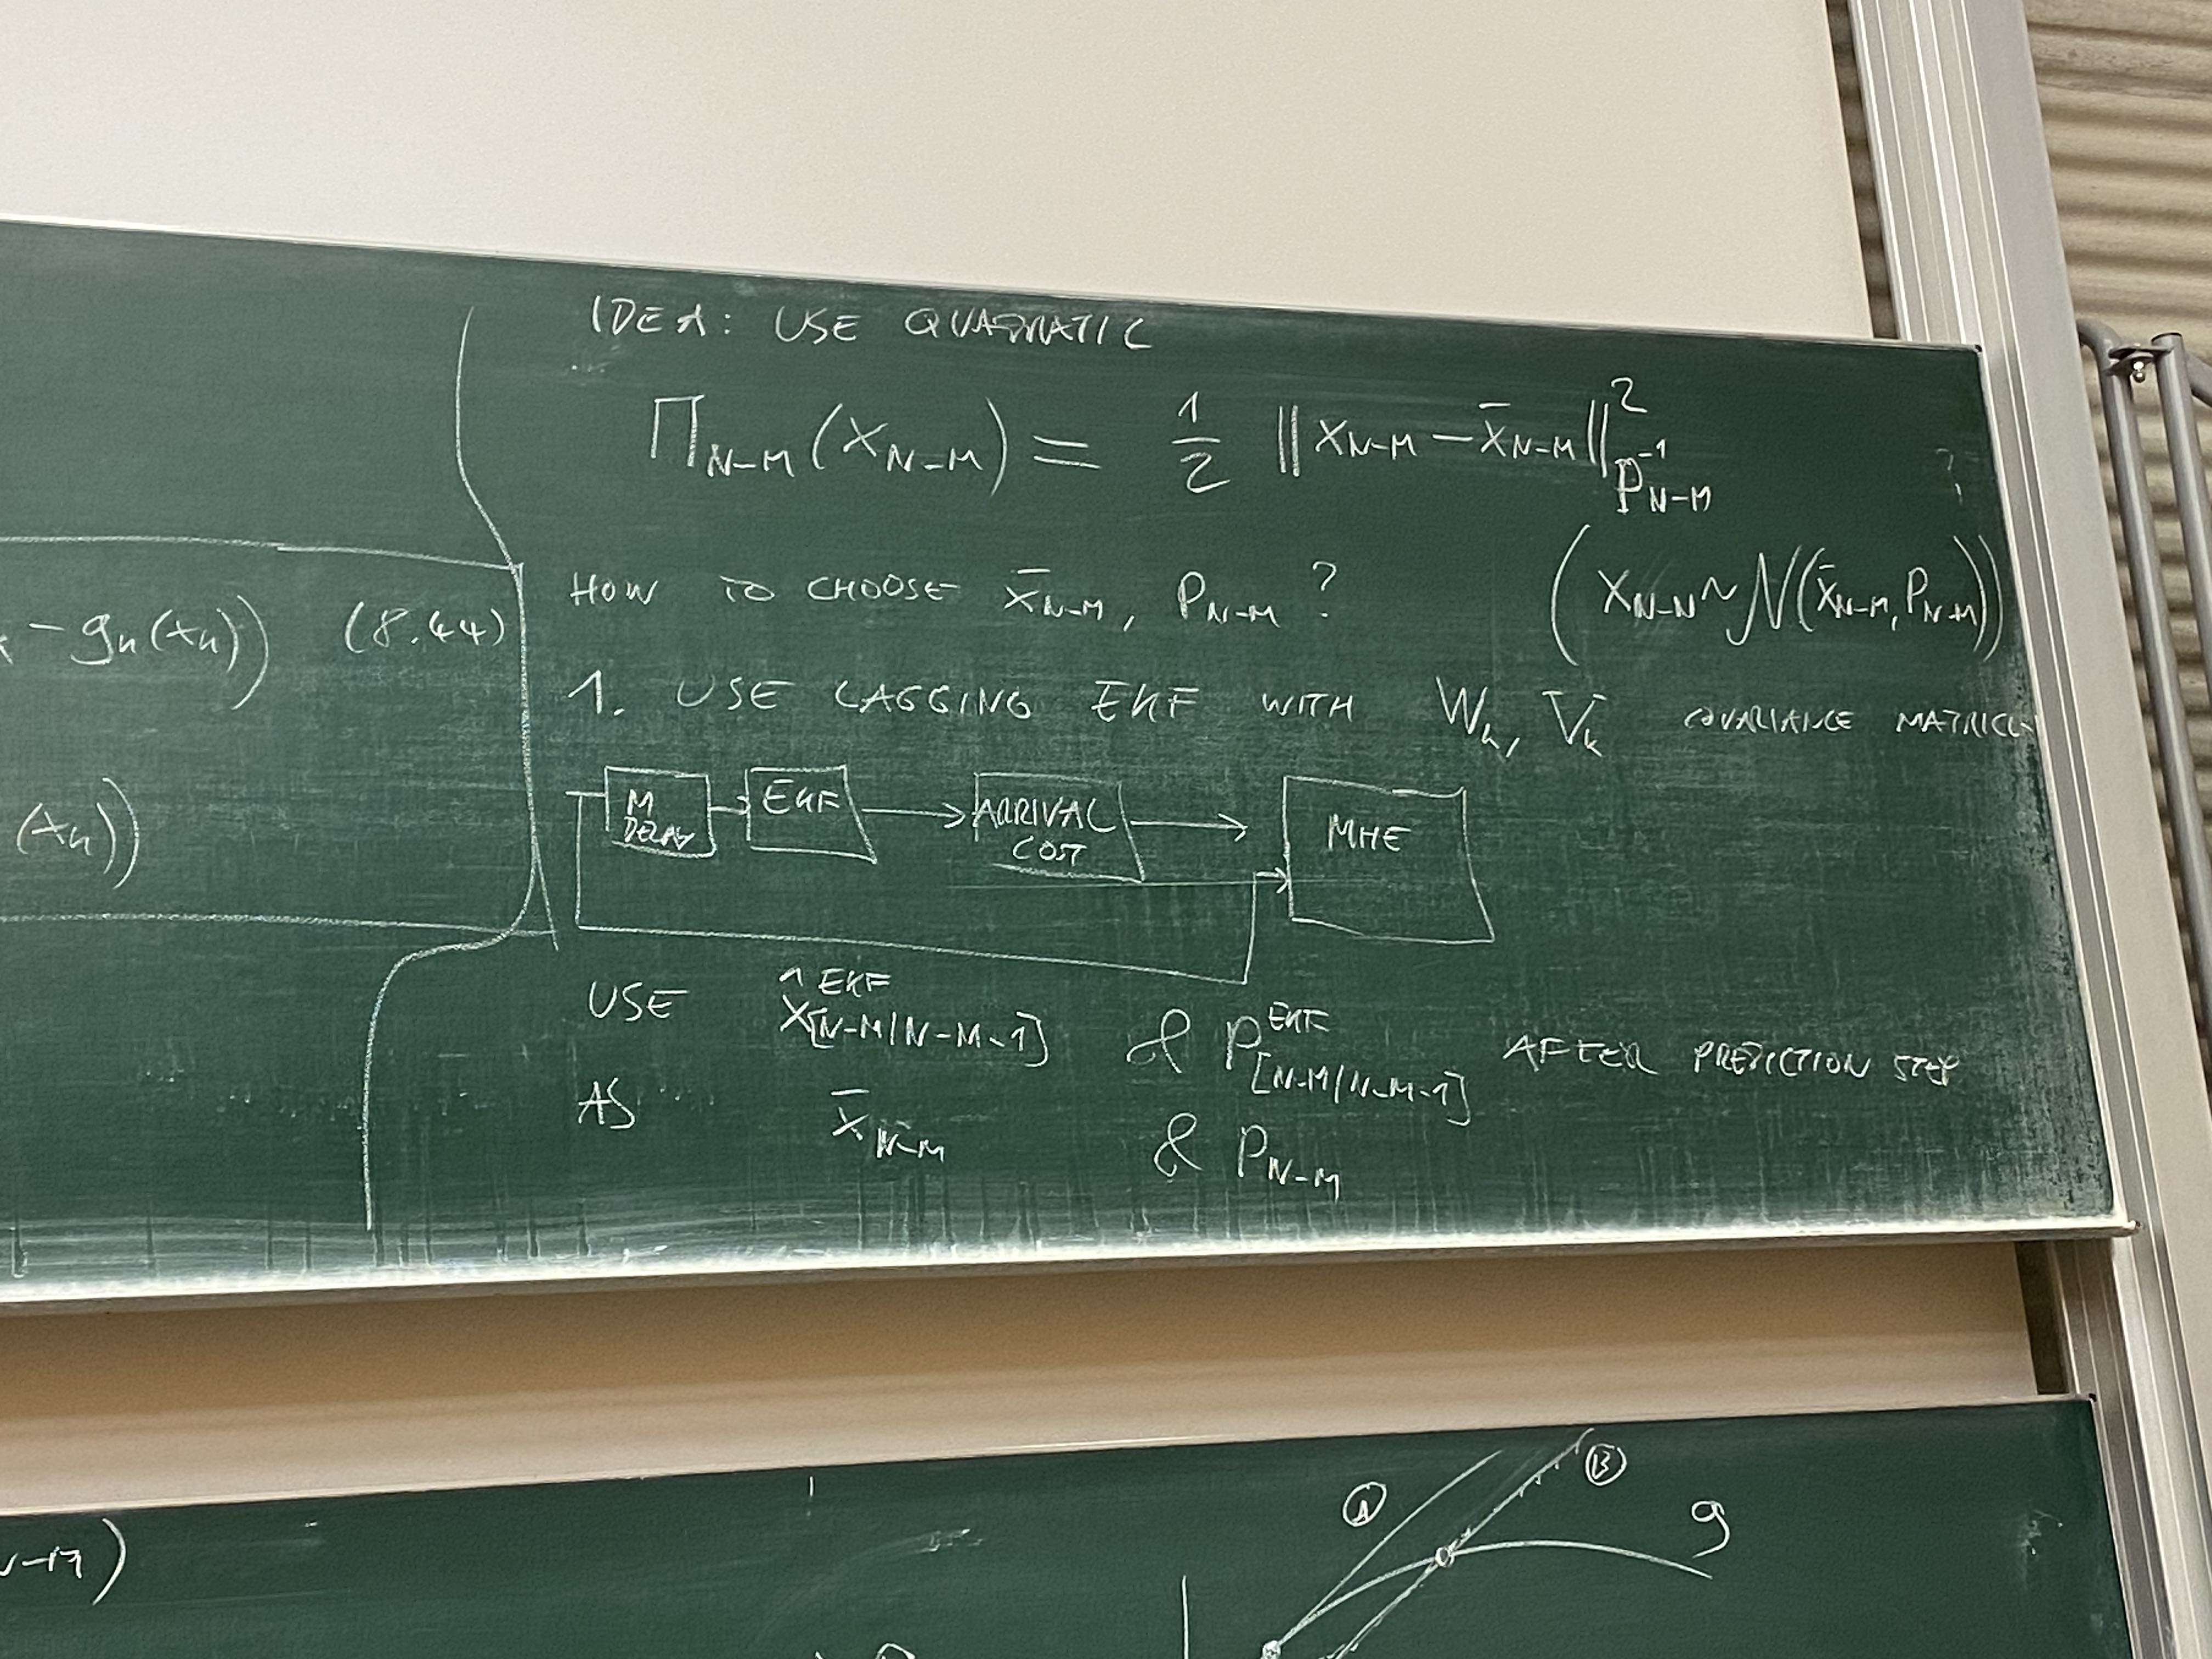 IDEA: USE QUADRATIC
Π_{N-M}(x_{N-M}) = 1/2 ‖x_{N-M} - x̄_{N-M}‖²_{P_{N-M}^{-1}}
?
HOW TO CHOOSE x̄_{N-M}, P_{N-M} ?
(x_{N-N} ~ N(x̄_{N-M}, P_{N-M}))
- g_k(x_k)) (8.44)
1. USE LAGGING EKF WITH W_k, V_k COVARIANCE MATRICES
(x_k))
M DELAY
EKF
ARRIVAL COST
MHE
USE x̂^{EKF}_{[N-M|N-M-1]} & P^{EKF}_{[N-M|N-M-1]} AFTER PREDICTION STEP
AS x̄_{N-M} & P_{N-M}
A
B
g
)